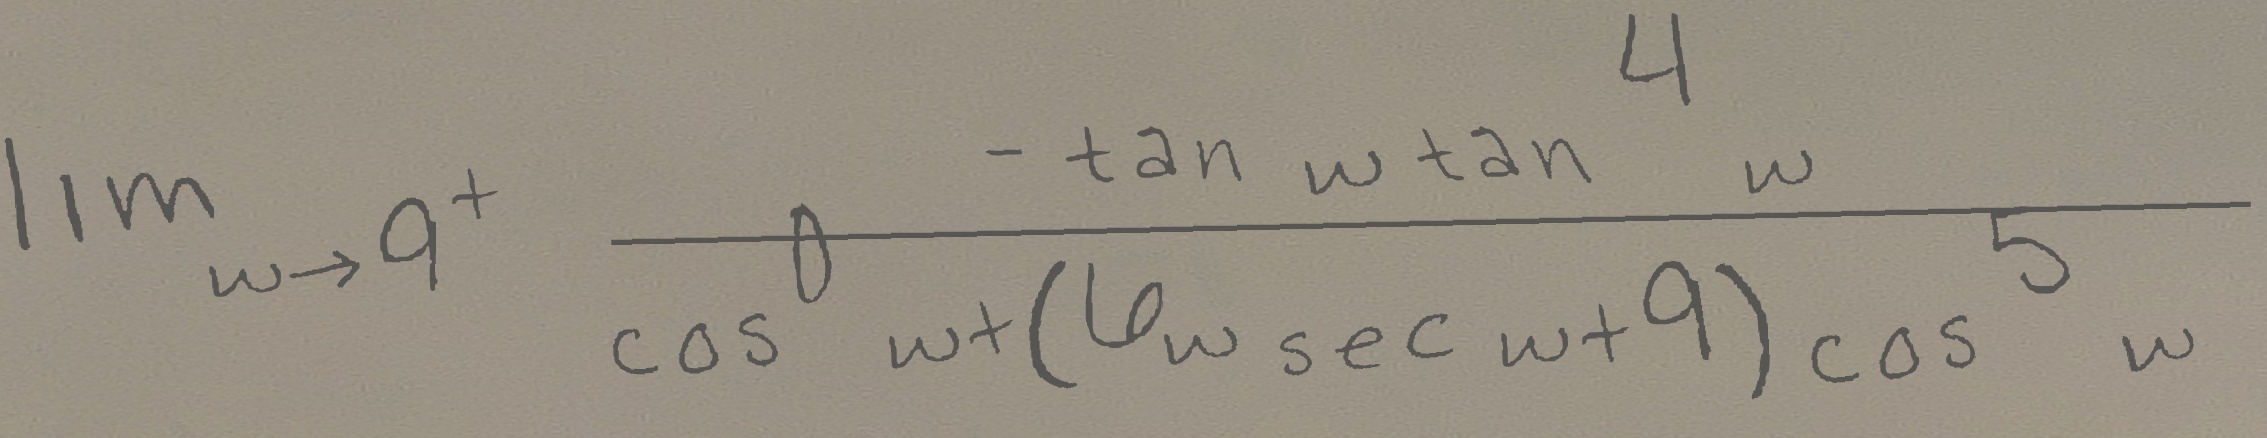 \lim_{w \to 9^+} \frac{-\tan w \tan^4 w}{\cos^0 w + (6w \sec w + 9) \cos^5 w}